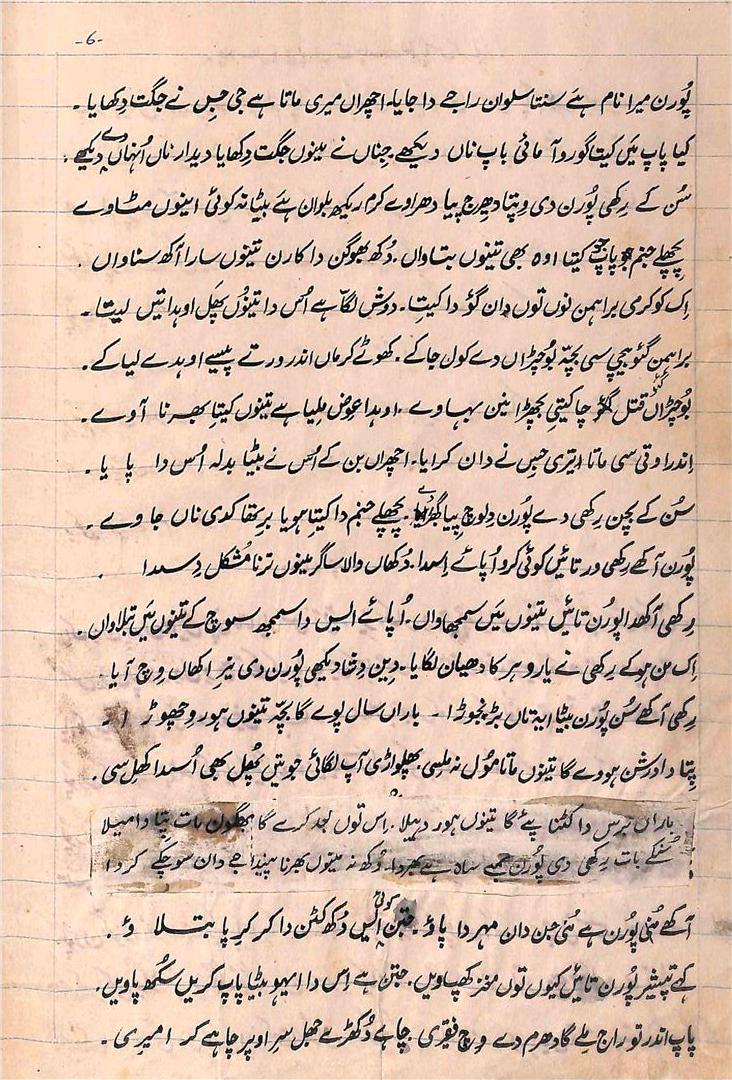 -6-
پُورن میرا نام ہئے سنتا سلوان راجے دا جایا۔ اچھراں میری ماتا ہے جی جِس نے جگت دِکھایا ۔
کیا پاپ میں کیتا گورو آ مائی باپ ناں دیکھے جِناں نے مینوں جگت دِکھایا دیدار ناں اُنہاں دے دیکھے ۔
سُن کے رِکھی پُورن دی وِپتا دھیرج پیا دھراوے کرم ریکھ بلوان ہئے بیٹا نہ کوئی اینوں مٹاوے
پچھلے جنم جو پاپ کیتا اوہ بھی تینوں بتاواں ۔ دُکھ بھوگن دا کارن تینوں سارا آکھ سناواں ۔
اِک کوکرمی براہمن نوں توں دان گؤ دا کیتا ۔ دوش لگا ہے اُس دا تینُوں پھَل اوہدا تیں لیتا ۔
براہمن گئو بیچی سی بچہّ بُوچڑاں دے کول جا کے ۔ کھوٹے کرماں اندر ورتے پیسے اوہدے لیا کے ۔
بُوچڑاں قتل گئو چا کیتی بچھڑا نین بہاوے ۔ اوہدا عِوض مِلیا ہے تینوں کیتا بھرنا آوے ۔
اِندراوتی سی ماتا تیری جِس نے دان کرایا ۔ اچھراں بن کے اُس نے بیٹا بدلہ اُس دا پایا ۔
سُن کے بچن رِکھی دے پُورن وِچ پیا ۔ پچھلے جنم دا کیتا ہویا بِرتھا کدی ناں جاوے ۔
پُورن آکھے رِکھی ور تائیں کوئی کرو اُپائے اِسدا ۔ دُکھاں والا ساگر مینوں ترنا مُشکل دِسدا
رِکھی آکھدا پورُن تائیں تینوں میں سمجھاواں ۔ اُپائے ایس دا سمجھ سوچ کے تینوں میں بتلاواں ۔
اِک من ہو کے رِکھی نے یارو ہر کا دھیان لگایا ۔ دِین دِشا دیکھی پُورن دی نیر اکھاں وِچ آیا ۔
رِکھی آکھے سُن پُورن بیٹا ایہ تاں بڑ پنجوڑا ۔ باراں سال پوے گا بچہّ تینوں ہور وِچھوڑا ۔
پِتا دا درشن ہووے گا تینوں ماتا مُول نہ ملسی پھلواڑی آپ لگائی جو تیں پھُل بھی اُسدا کھِل سی ۔
باراں برس دا کٹنا پئے گا تینوں ہور دہیلا ۔ اِس توں بعد کرے گا بھگون مات پِتا دا میلا
سُنکے بات رِکھی دی پُورن لمبے ساہ ہے بھردا ۔ دُکھ نہ مینوں بھرنا پیندا جے دان سوچکے کردا
آکھے مُنی پُورن ہے مُنی جن دان مہر دا پاؤ ۔ جتن کوئی ایس دُکھ کٹن دا کر کِرپا بتلاؤ ۔
کہے تپیشر پُورن تائیں کیوں توں مغز کھپاویں ۔ جتن ہے اِس دا ایہو بیٹا پاپ کریں سُکھ پاویں ۔
پاپ اندر تو راج مِلے گا دھرم دے وِچ فقیری ۔ چاہے دُکھڑے جھل سِر اوپر چاہے کر امیری ۔